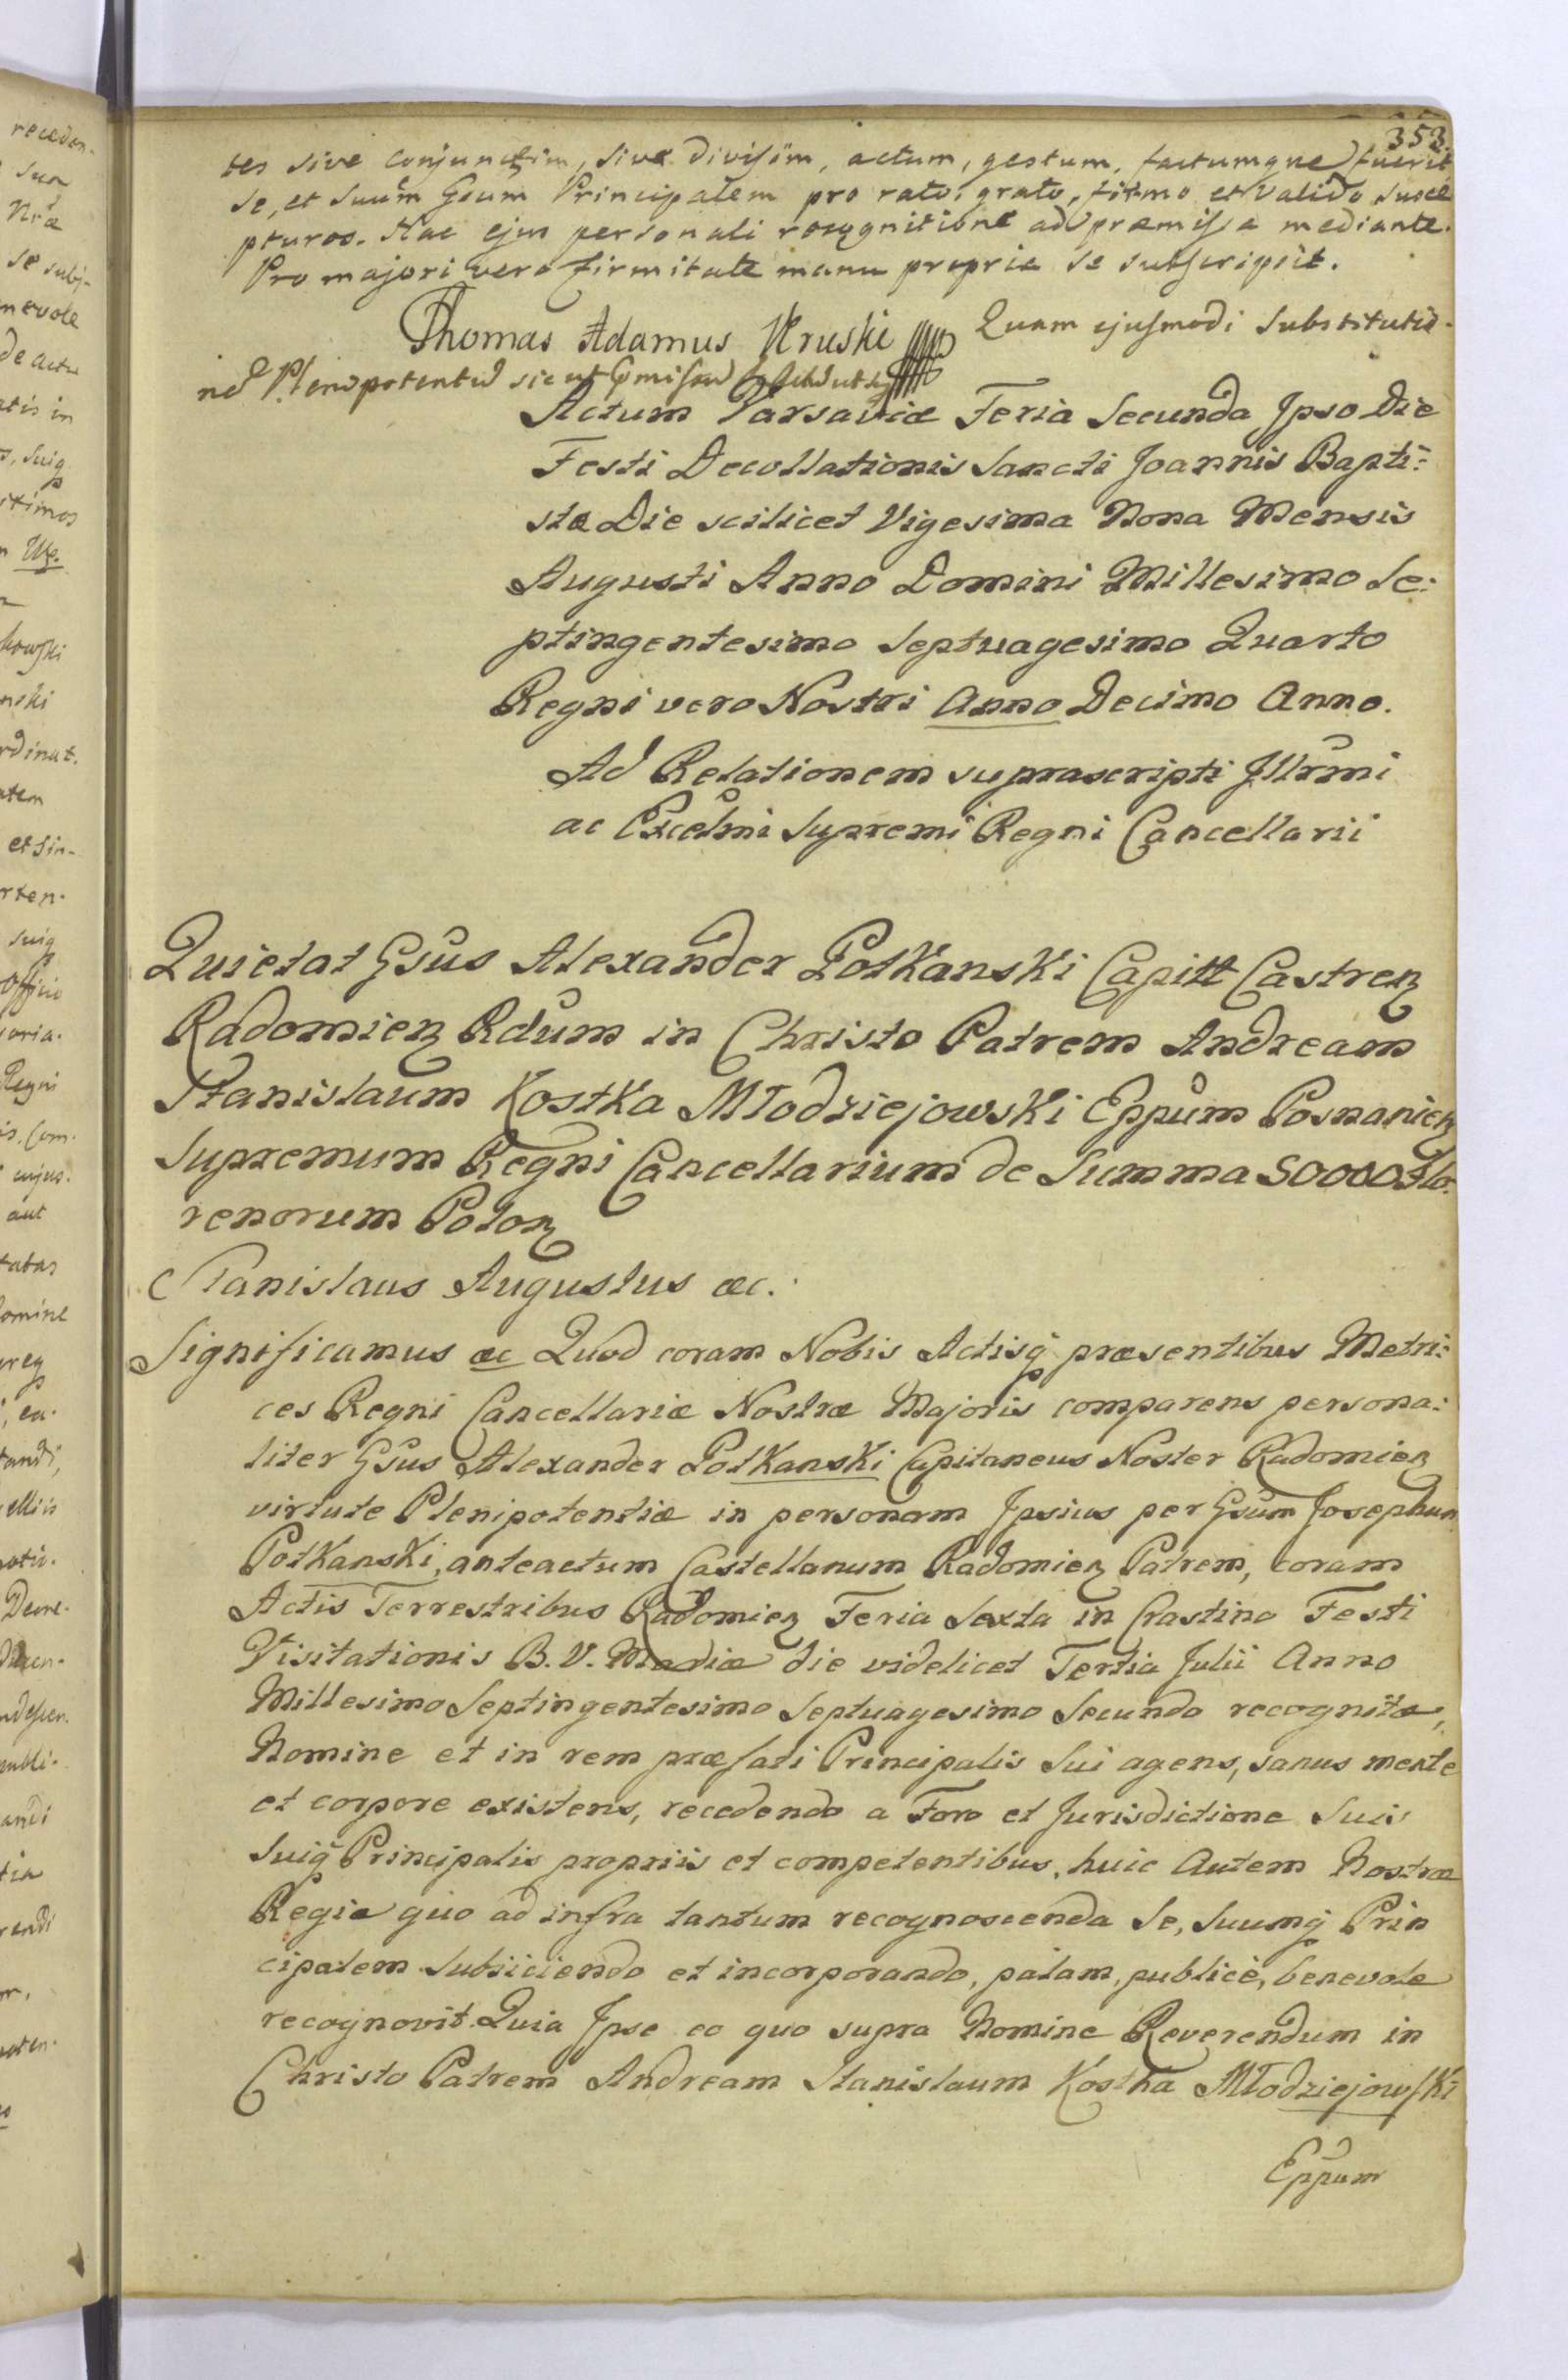 353.
tes sive conjunctim, sive divisim, actum, gestum, factumque fuerit
se, et suum Gsum Principalem pro rato, grato, firmo et valido susce
pturos. Hac ejus personali recognitione ad præmissa mediante.
Pro majori vero firmitate manu propria se subscripsit.
Thomas Adamus Kruski Quam ejusmodi substitutio-
ne Plenipotentia sicut
Actum Varsaviæ Feria Secunda Ipso Die
Festi Decollationis Sancti Joannis Bapti:
stæ Die scilicet Vigesima Nona Mensis
Augusti Anno Domini Millesimo Se:
ptingentesimo Septuagesimo Quarto
Regni vero Nostri Anno Decimo Anno.
Ad Relationem suprascripti Illrmi
ac Excelmi Supremi Regni Cancellarii
Quietat Gsus Alexander Potkanski Capitt Castren
Radomien Rdum in Christo Patrem Andream
Stanislaum Kostka Młodziejowski Eppum Posnanien
Supremum Regni Cancellarium de Summa 50000 Flo-
renorum Polon
Stanislaus Augustus æc.
Significamus æc Quod coram Nobis Actisq præsentibus Metri:
ces Regni Cancellariæ Nostræ Majoris comparens persona:
liter Gsus Alexander Potkanski Capitaneus Noster Radomien
virtute Plenipotentiæ in personam Ipsius per Gsum Josephum
Potkanski, anteactum Castellanum Radomien Patrem, coram
Actis Terrestribus Radomien Feria Sexta in Crastino Festi
Visitationis B. V. Mariæ die videlicet Tertia Julii Anno
Millesimo Septingentesimo Septuagesimo Secundo recognitæ,
Nomine et in rem præfati Principalis Sui agens, sanus mente
et corpore existens, recedendo a Foro et Jurisdictione Suis
Suiq Principalis propriis et competentibus, huic Autem Nostræ
Regiæ quo ad infra tantum recognoscenda Se, Suumq Prin
cipalem Subiiciendo et incorporando, palam, publicè, benevole
recognovit. Quia Ipse eo quo supra Nomine Reverendum in
Christo Patrem Andream Stanislaum Kostka Młodziejowski
Eppum